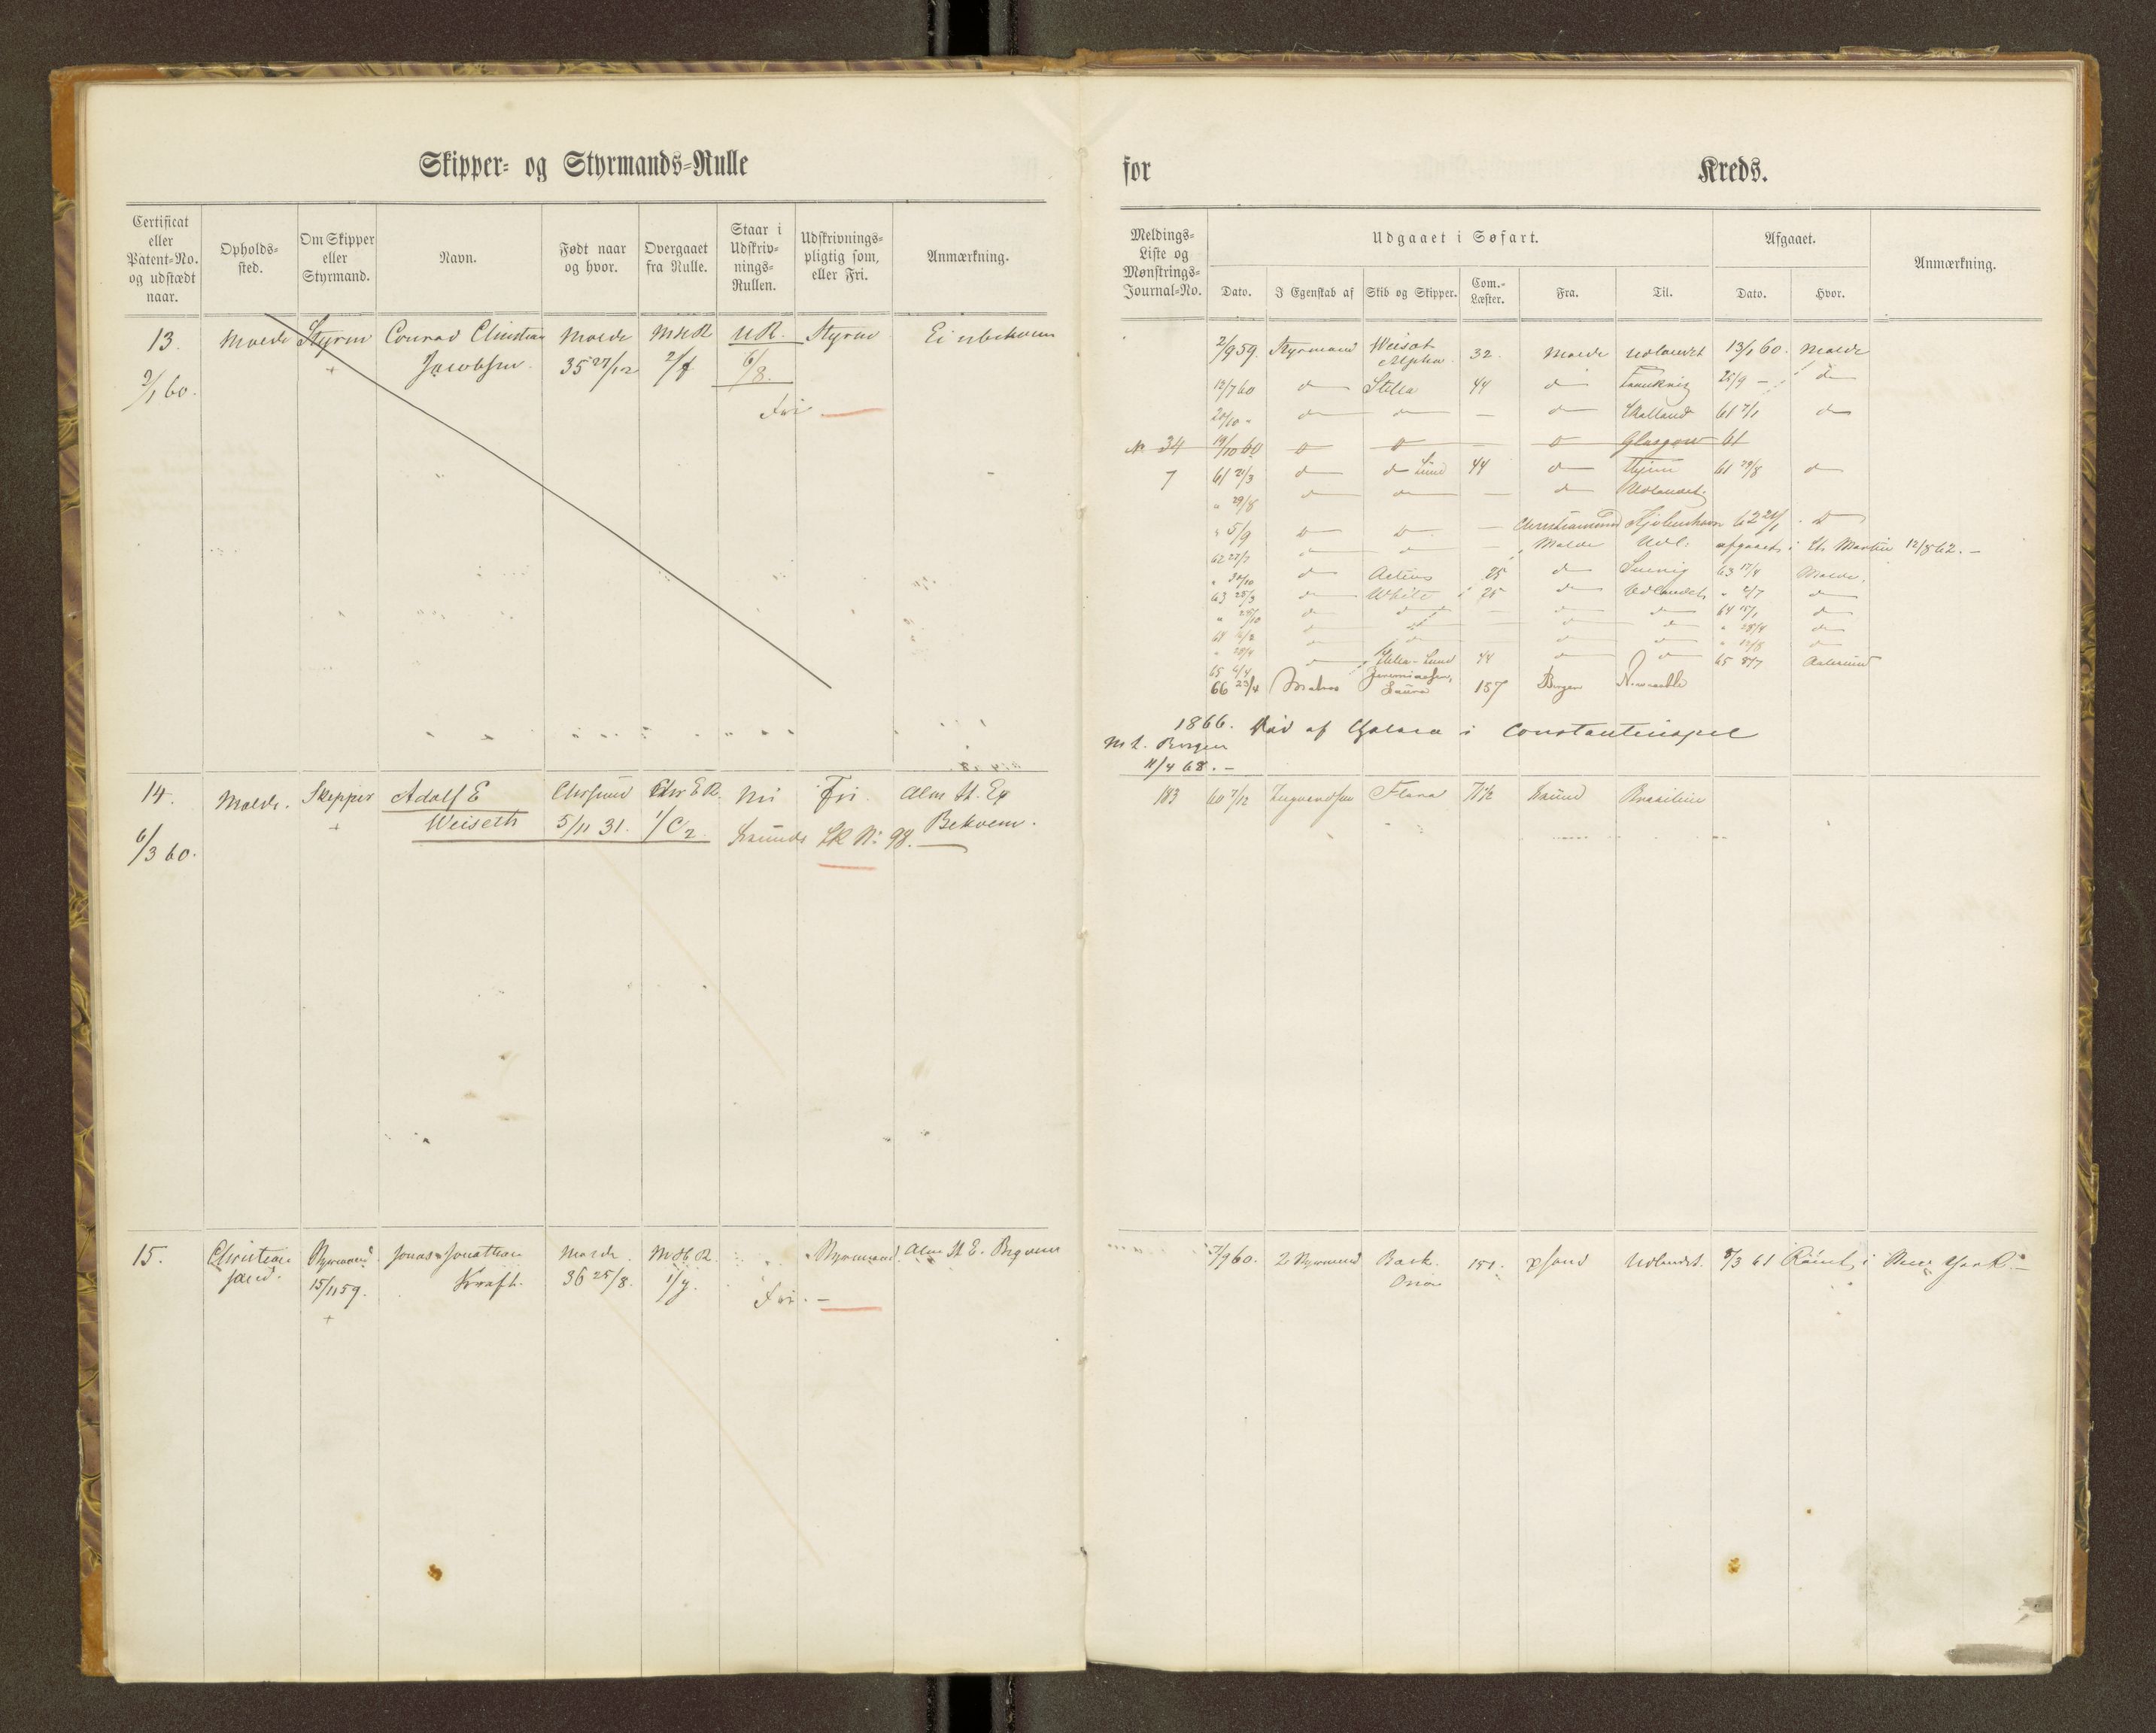 Skipper- og Styrmands-Rulle
for Kreds.
Certificat eller Patent-No. og udstædt naar.
Opholds-sted.
Om Skipper eller Styrmand.
Navn.
Født naar og hvor.
Overgaaet fra Rulle.
Staar i Udskriv-nings-Rullen.
Udskrivnings-pligtig som, eller Fri.
Anmærkning.
Meldings-Liste og Mønstrings-Journal-No.
Udgaaet i Søfart.
Dato.
I Egenskab af
Skib og Skipper.
Com.-Læster.
Fra.
Til.
Afgaaet.
Dato.
Hvor.
Anmærkning.
13. Molde Styrm Conrad Christian Molde MHR UR. Styrm Ei ubekvem
2/1 60. Jacobsen 35 27/12 2/f 6/8.
Fri
2/9 59. Styrmand Alpha 32. Molde Udlandet 13/1 60. Molde
12/7 60 do Stella 44 do 25/9 - do
20/10 " do do — do 61 7/1 do
No 34 19/10 60 do do — do Glasgow 61
7 61 21/3 do do Lund 44 do 61 29/8 do
" 29/8 do do — do Udlandet
" 5/9 do do — Christiansund Kjöbenhavn 62 do
62 27/2 do do — Molde Udl. afgaaet i St. Martin 12/8 62. —
" 30/10 do 25 do 63 17/4 Molde.
63 25/3 do White 25 do Udlandet " 2/7 do
do do — do do 64 do
64 do do — do do " 28/4 do
" 28/4 do do do " 12/8 do
65 6/4 do Stella - Lund 44 do do 65 8/7 Aalesund
66 23/4 Matros Laura 157 Bergen Newcastle
1866. Död af Cholera i Constantinopel
M L. Bergen
11/4 68. —
14. Molde. Skipper Adolf E Chrsund Chr E R. Nei Fri. Alm St. Ex
6/3 60. Weiseth 5/11 31. 1/C 2. Ksunds Sk No 98. Bekvem.
183 60 7/12 Flora 71½ Ksund Brasilien
15. Christian- Styrmand Jonas Jonathan Molde. M H R. Styrmand Alm St E. Beqvem
sand. 15/11 59. Kraft. 36 25/8. 1/y. Fri. —
7/9 60. 2 Styrmand Bark 151. xsand Udlandet. 5/3 61 Römt i New York. —
Orion